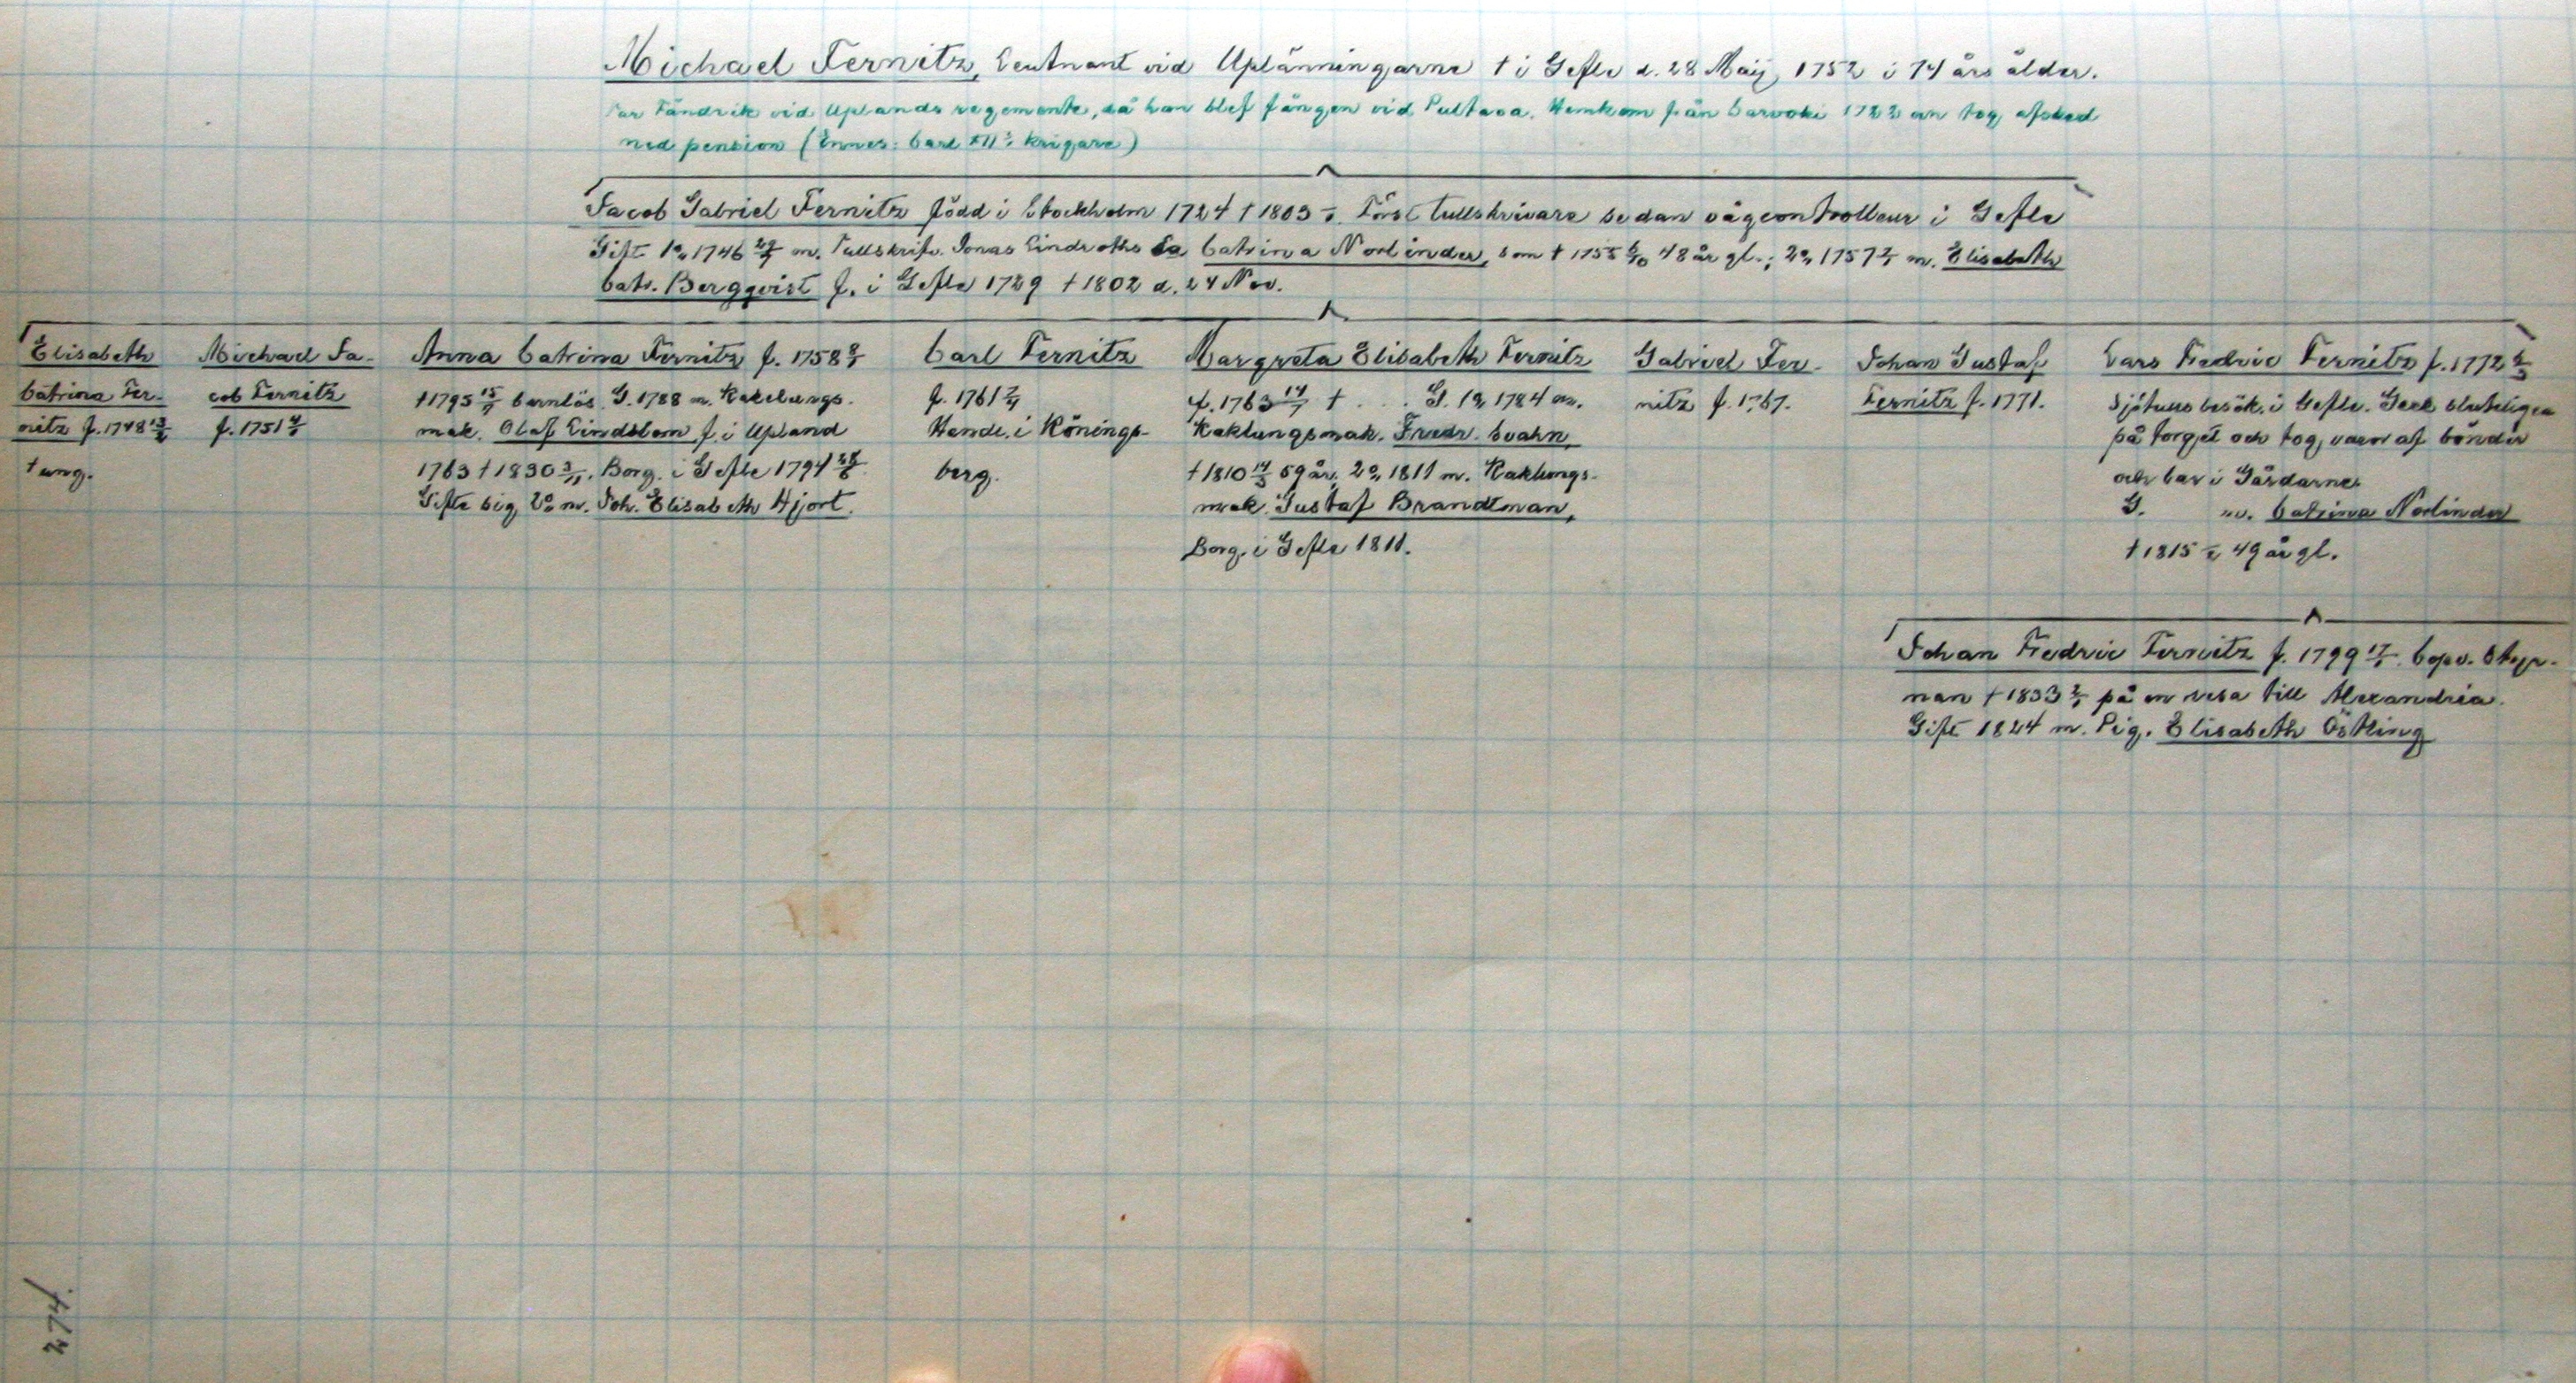 Michael Fernitz, Leutnant vid Uplänningarne † i Gefle d. 28 Maij 1752 i 74 års ålder.
Var Fändrik vid Uplands regemente, då han blef fången vid Pultava. Hemkom från 1722 an tog afsked
med pension (Ennes: Carl XII:s krigare)
Jacob Gabriel Fernitz född i Stockholm 1724 † 1803 Först tullskrivare sedan vågcontrolleur i Gefle
Gift 1o, 1746 m. Tullskrifv. Jonas Lindroths Ea Catrina Norlinder, som † 1755 6/10 48 år gl.; 2o, 1757 m. Elisabeth
Catr. Bergqvist f. i Gefle 1729 † 1802 d. 24 Nov.
Elisabeth
Catrina Fer-
nitz f. 1748
† ung.
Michael Ja-
cob Fernitz
f. 1751
Anna Catrina Fernitz f. 1758
† 1795 barnlös. G. 1788 m. Kakelungs-
mak. Olaf Lindblom f. i Upland
1763 † 1830 3/11. Borg. i Gefle 1794
Gifte sig 2o m. Joh. Elisabeth Hjort.
Carl Fernitz
f. 1761
Hande. i Könings-
berg.
Margreta Elisabeth Fernitz
f. 1763 14/7 † . . . G. 1o, 1784 m.
Kaklungsmak. Fredr. Svahn
† 1810 14/3 59 år, 2o, 1811 m. Kaklungs-
mak. Gustaf Brandtman,
Borg. i Gefle 1811.
Gabriel Fer-
nitz f. 1767.
Johan Gustaf
Fernitz f. 1771.
Lars Fredric Fernitz f. 1772
Sjötulls besök. i Gefle. Geck sluteligen
på torget och tog varor af bönder
och bar i Gårdarne.
G. m. Catrina Norlinder
† 1815 49 år gl.
Johan Fredric Fernitz f. 1799 Copv. Styr-
man † 1833 på en resa till Alexandria.
Gift 1824 m. Pig. Elisabeth Östling
274.